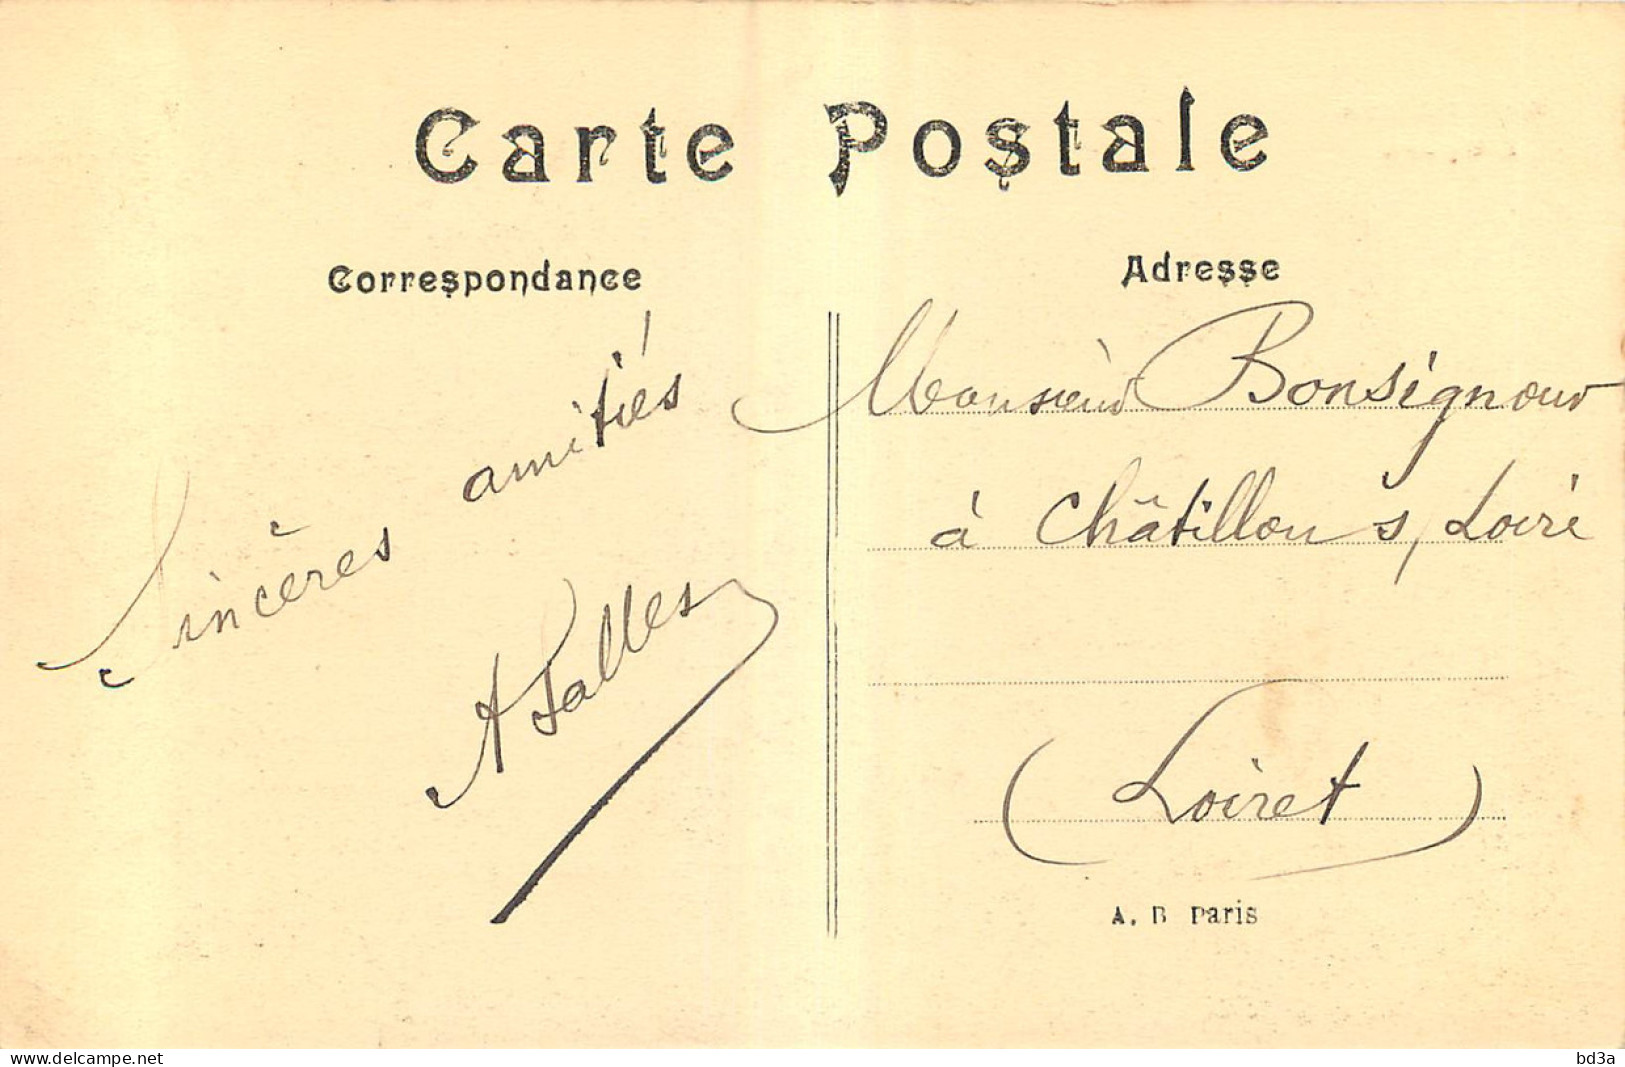 Carte Postale
Correspondance
Sincères amitiés
A Salles
Adresse
Monsieur Bonsignour
à Châtillon s/ Loire
(Loiret)
A. B Paris
www.delcampe.net
bd3a